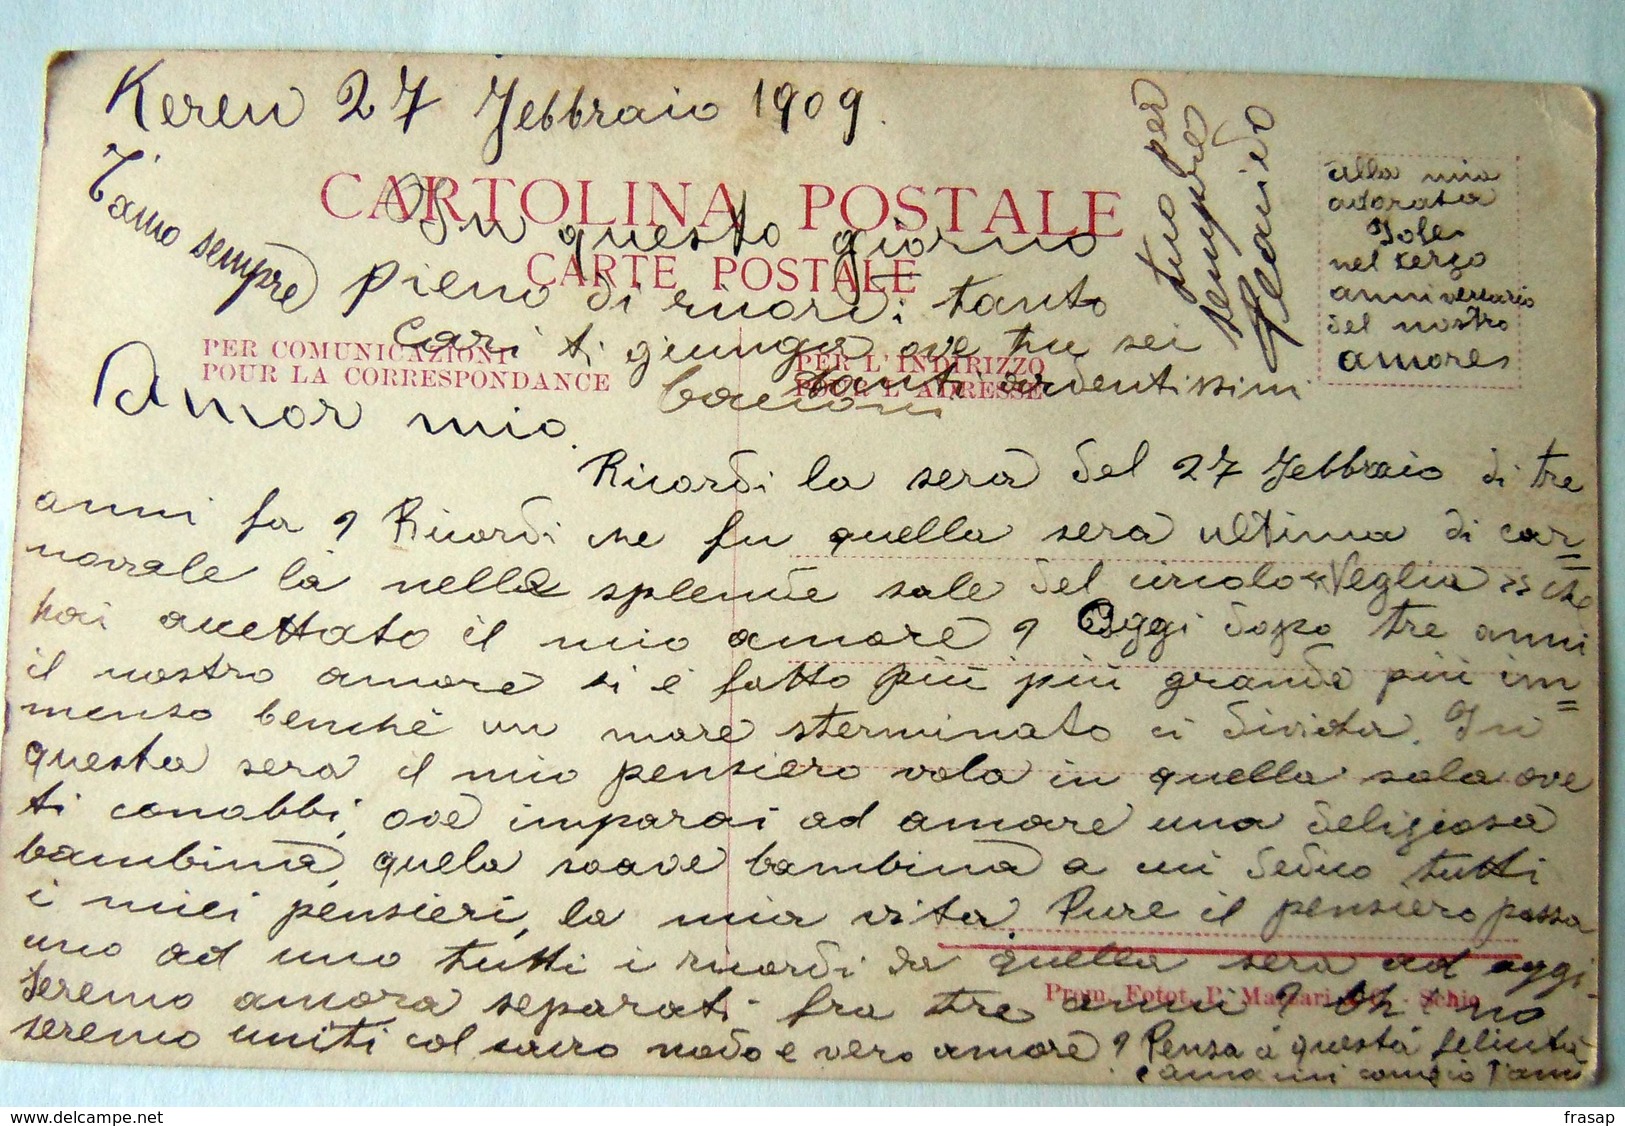 Keren 27 Febbraio 1909.
T'amo sempre
CARTOLINA POSTALE
CARTE POSTALE
In questo giorno
pieno di ricordi tanto
cari ti giunga ove tu sei
tanti ardentissimi
bacioni
tuo per
sempre
alla mia
adorata
Iole
nel terzo
anniversario
del nostro
amore
PER COMUNICAZIONI
POUR LA CORRESPONDANCE
PER L'INDIRIZZO
POUR L'ADRESSE
Amor mio.
Ricordi la sera del 27 Febbraio di tre
anni fa? Ricordi che fu quella sera ultima di car=
novale là nelle splende sale del circolo "Veglia" che
hai accettato il mio amore? Oggi dopo tre anni
il nostro amore si è fatto più più grande più im=
menso benchè un mare sterminato ci divida. In
questa sera il mio pensiero vola in quella sala ove
ti conobbi, ove imparai ad amare una deligiosa
bambina, quela soave bambina a cui dedico tutti
i miei pensieri, la mia vita. Pure il pensiero passa
uno ad uno tutti i ricordi da quella sera ad oggi.
Seremo amora separati fra tre anni? Oh! no
seremo uniti col sacro nodo e vero amore? Pensa a questa felicità
e amami come io t'amo
Prem. Fotot. P. - Schio
frasap